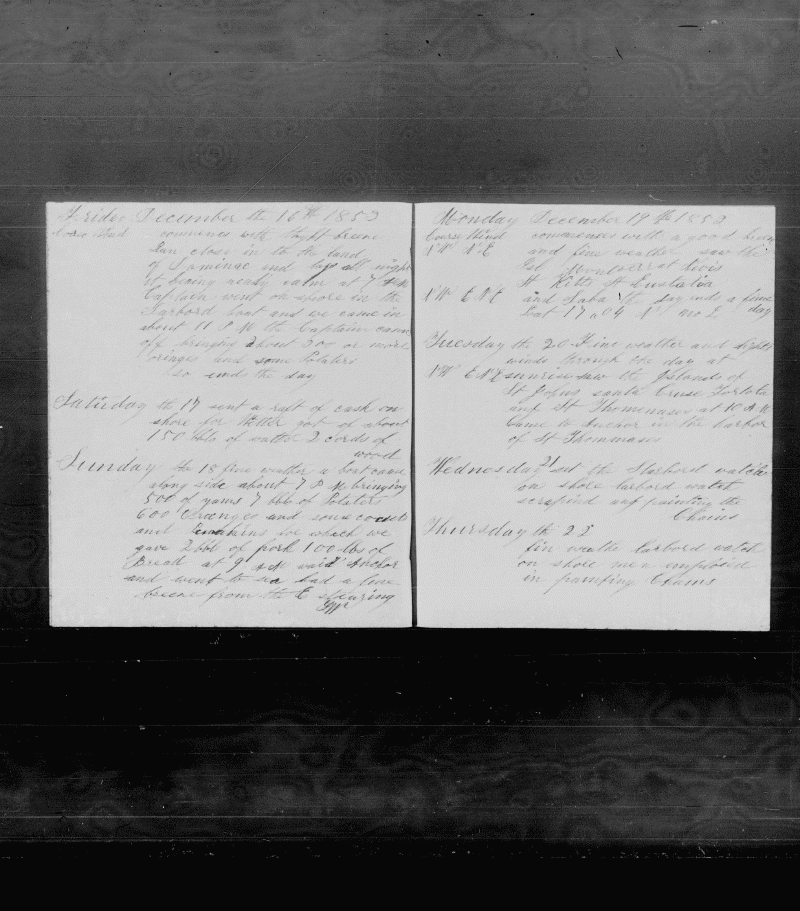 Friday December the 16th 1853
Cours Wind commences with light breese
Ran close in to the land
of Dominac and lay all night
it being nearly calm at 7 A M
Captain went on shore in the
Larbord boat and we came in
about 11 P M the Captain came
off bringing about 300 or more
oringes and some Potaters
so ends the day
Saturday the 17 sent a raft of cask on
shore for Watter got of about
150 bbls of watter 2 cords of
wood
Sunday the 18 fine weather a boat came
along side about 7 P M bringing
500 of yams 7 bbl of Potaters
600 Oranges and some
and for which we
gave 2 bbl of pork 100 lbs of
Bread at 9 A M waid Anchor
and went to sea had a
breese from the E stearing
NW
Monday December 19 the 1853
Course Wind commences with a good breeze
NW N E and fine weather saw the
Isl Montserrat Nevis
St Kitts St Eustatia
NW E N E and Saba the day ends a fine
Lat 17 " 04 N no L day
Tuesday the 20 Fine weather and light
winds through the day at
NW E N E sunrise saw the Islands of
St Johns santa Cruse Tortola
and St Thomenases at 10 A M
Came to Anchor in the harbor
of St Thommases
Wednesday 21 sent the Starbord watch
on shore larbord watch
scrapind and painting the
Chains
Thursday the 22
fin weathe larbord watch
on shore men employed
in painting Chains